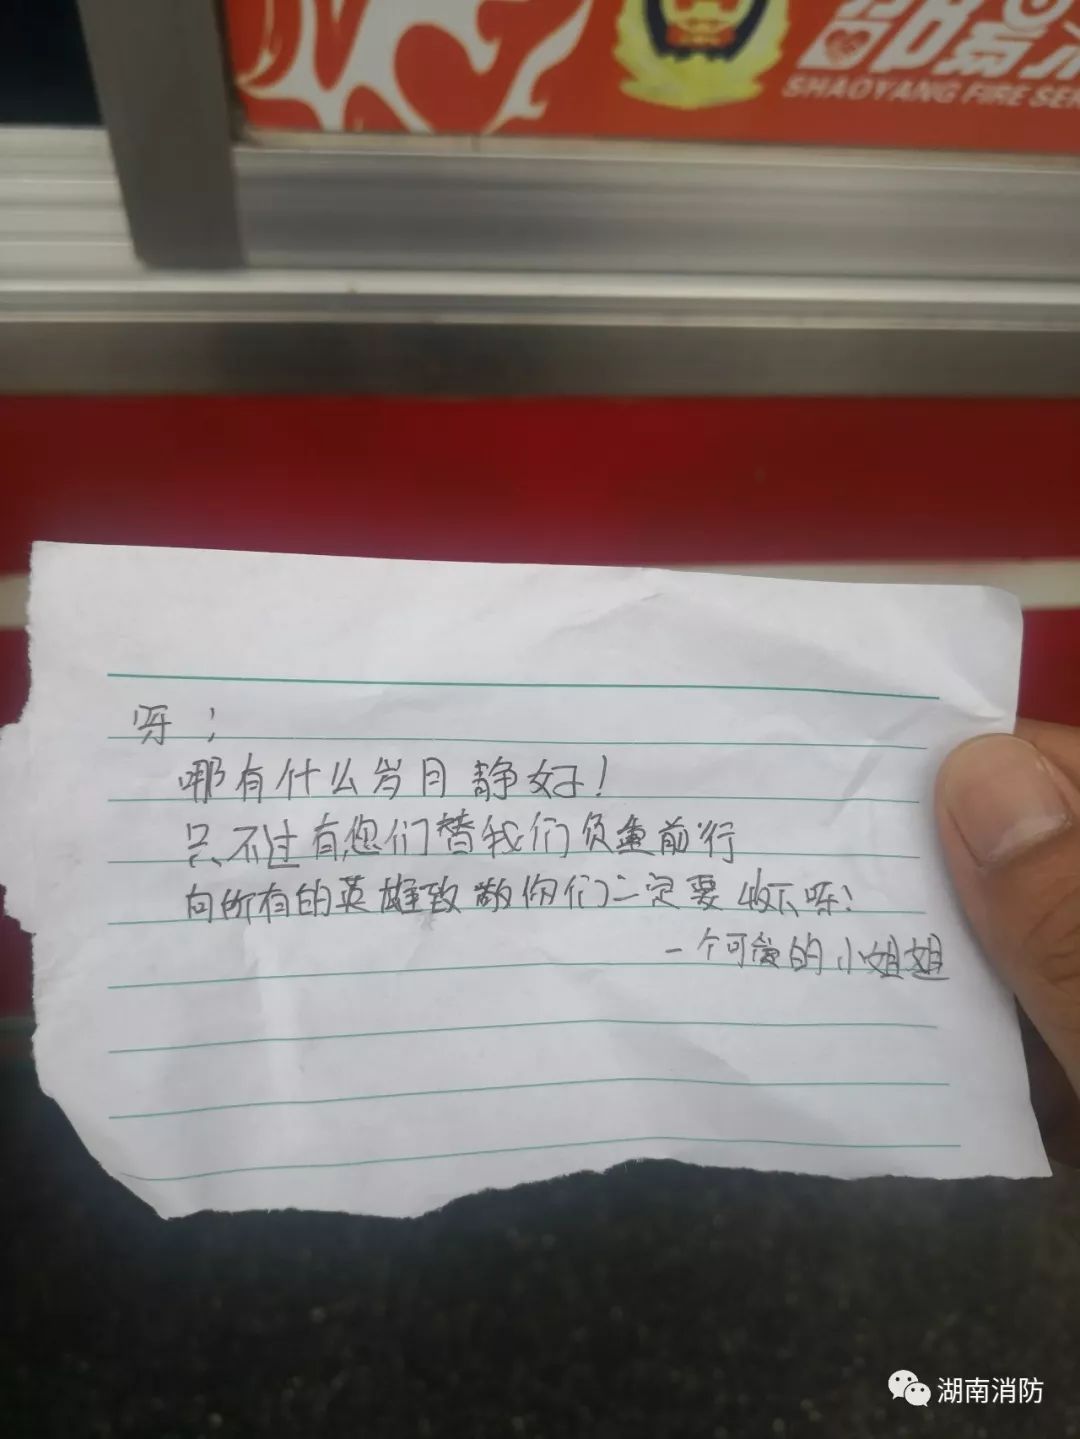 邵阳消
SHAOYANG FIRE SER
呀；
哪有什么岁月静好！
只不过有您们替我们负重前行
向所有的英雄致敬你们一定要收下呀！
一个可爱的小姐姐
湖南消防